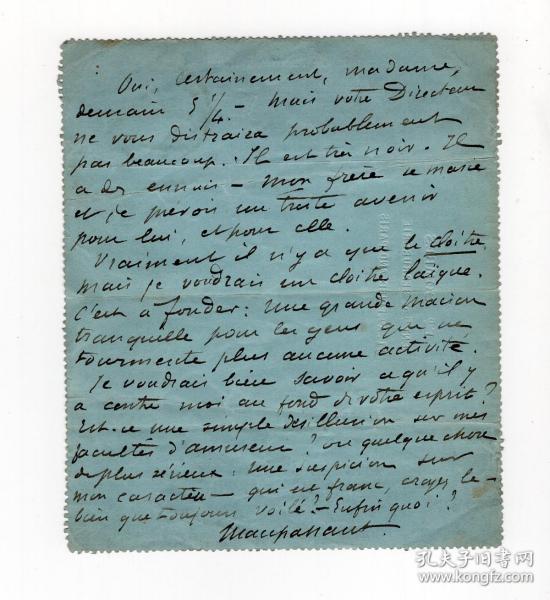 Oui, certainement, madame,
demain 5 1/4. - Mais votre Directeur
ne vous distraira probablement
pas beaucoup. Il est très noir. Il
a des ennuis - Mon frère se marie
et je prévois un triste avenir
pour lui, et pour elle.
Vraiment il n'y a que le cloître
mais je voudrais un cloître laïque.
C'est à fonder: Une grande maison
tranquille pour les gens que ne
tourmente plus aucune activité.
Je voudrais bien savoir ce qu'il y
a contre moi au fond de votre esprit?
Est-ce une simple désillusion sur mes
facultés d'amuseur? ou quelque chose
de plus sérieux: Une suspicion sur
mon caractère - qui est franc, croyez le -
bien que toujours voilé? - Enfin quoi?
Maupassant.
孔夫子旧书网
www.kongfz.com